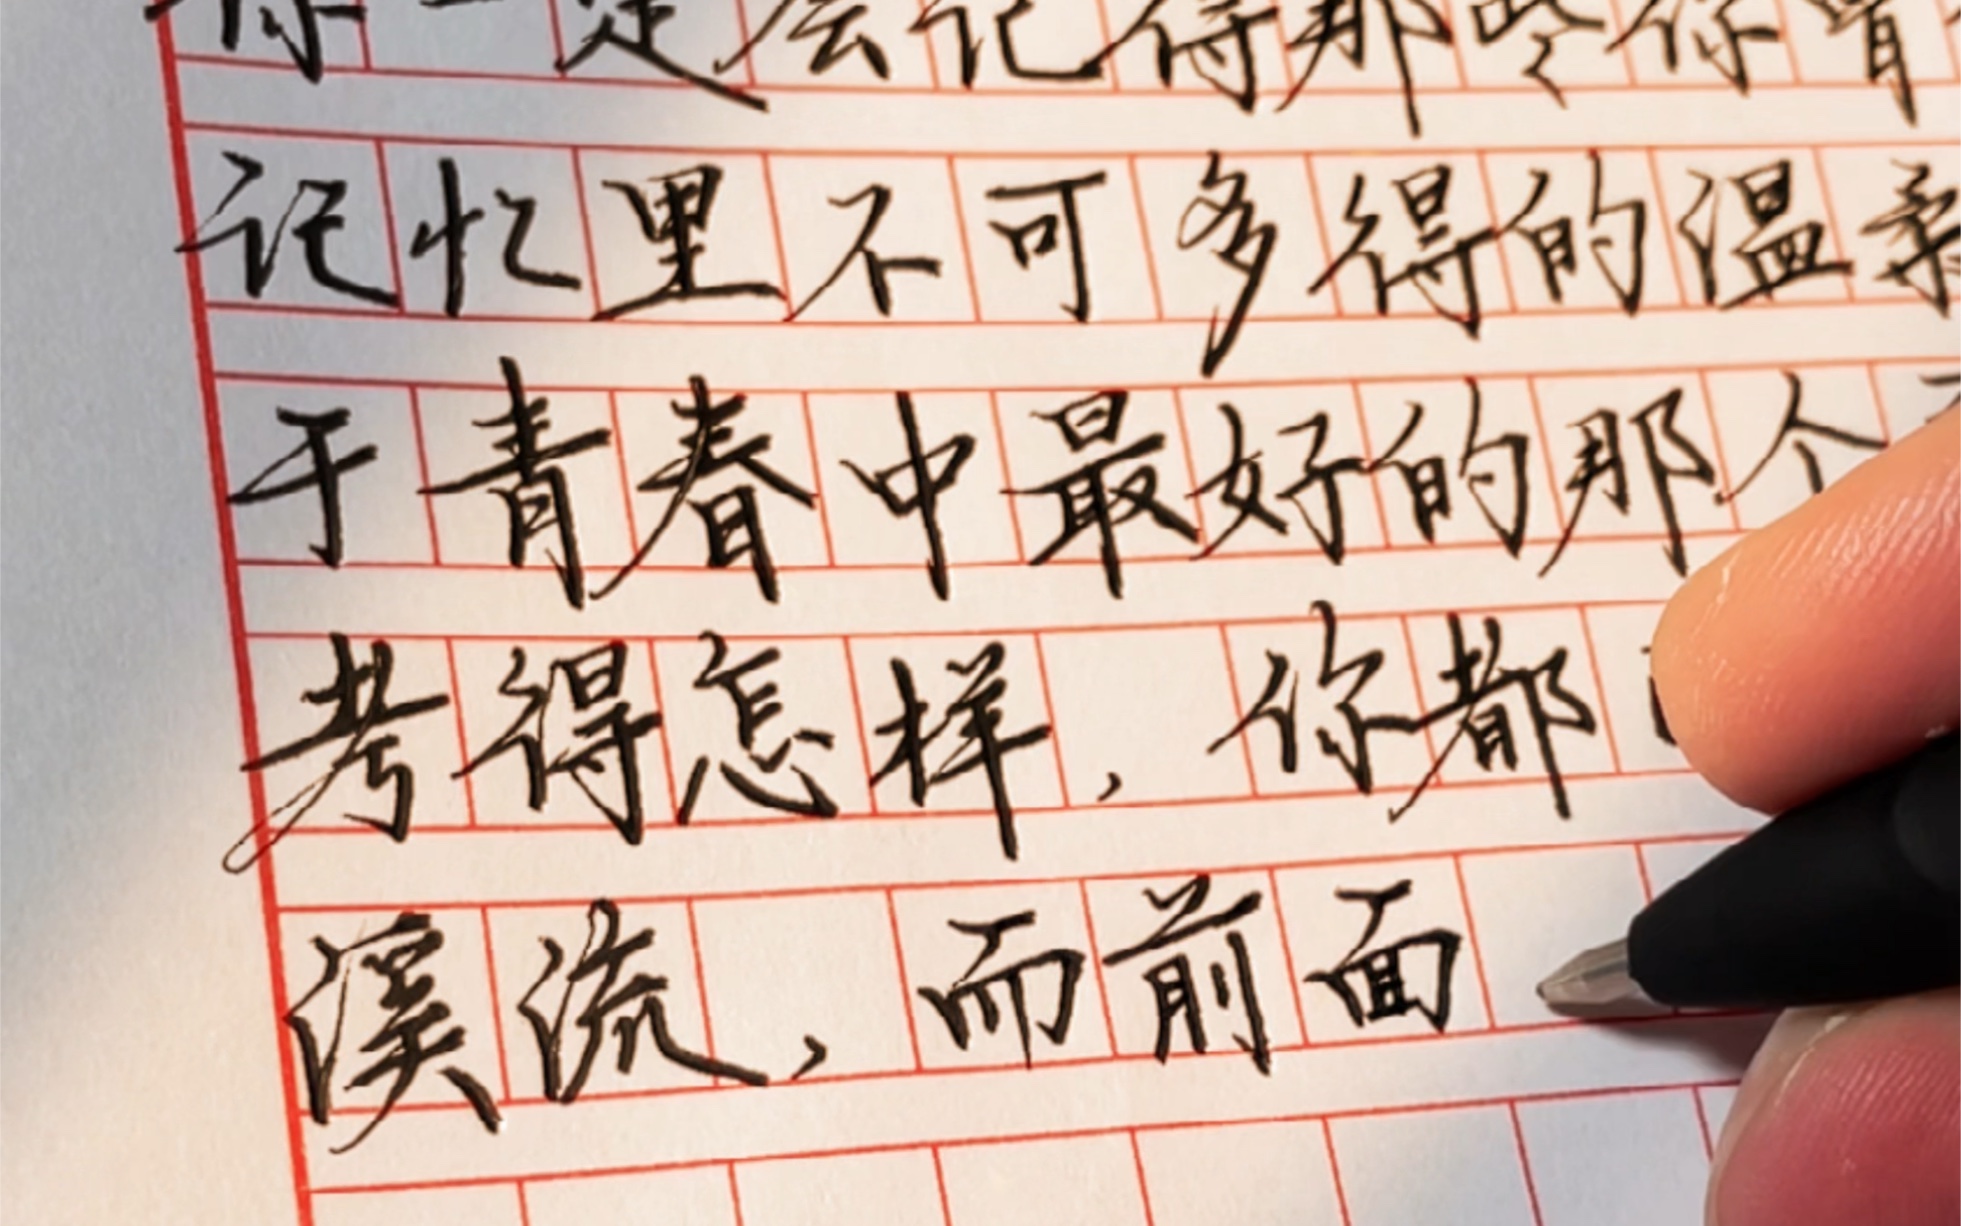 你一定会记得那些你曾
记忆里不可多得的温柔
于青春中最好的那个
考得怎样，你都
溪流，而前面